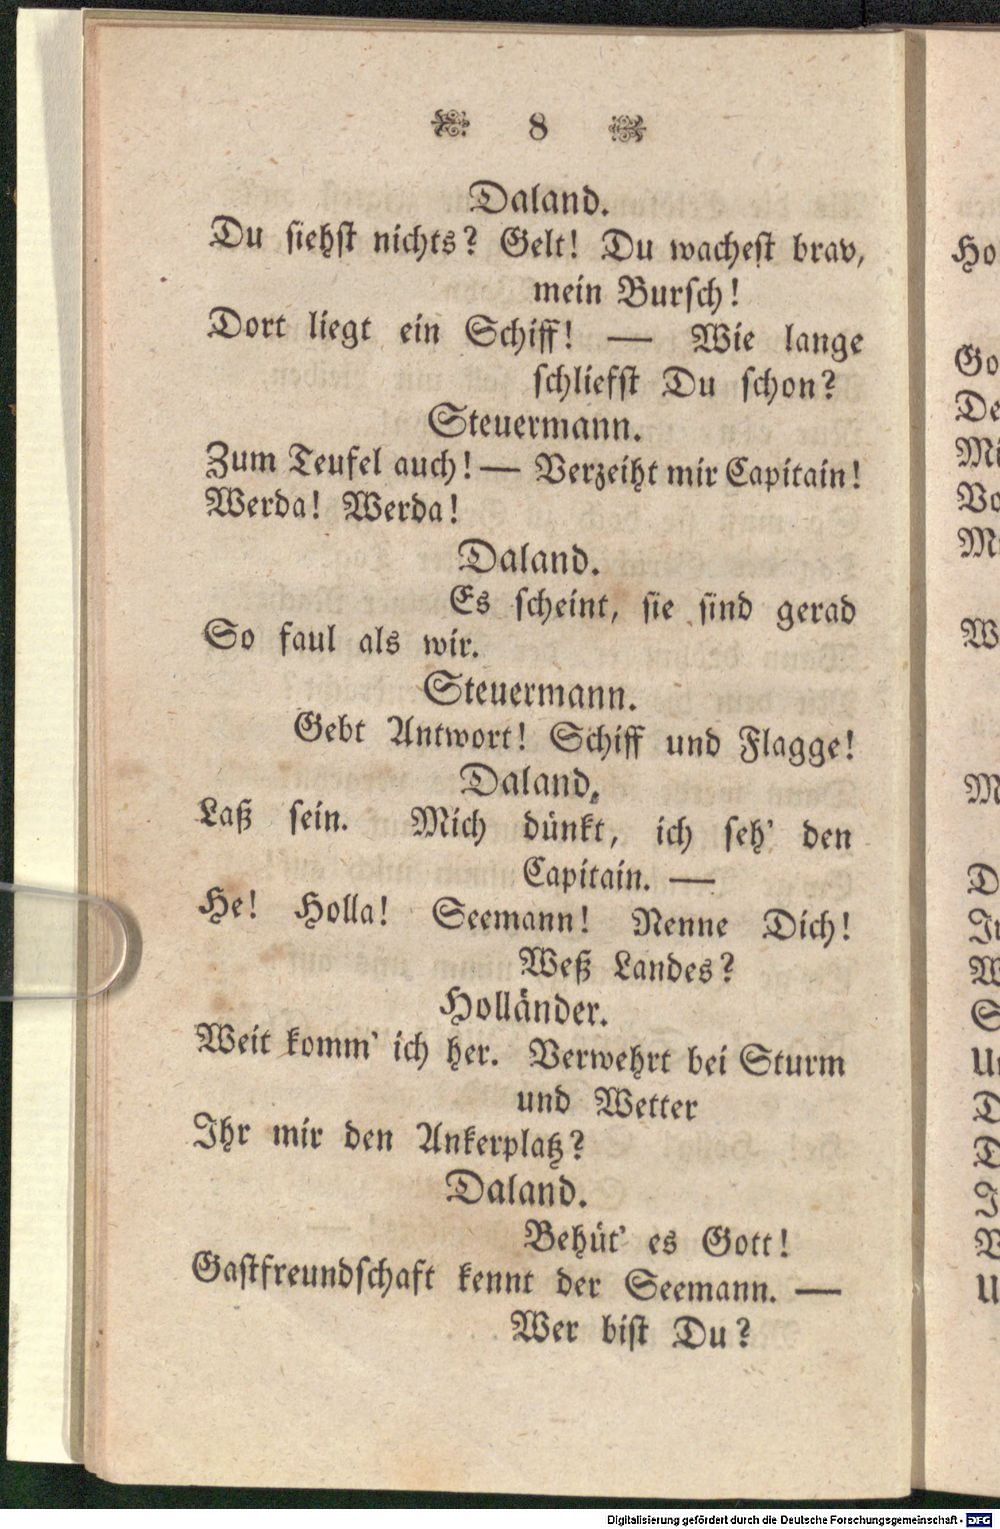 8
Daland.
Du siehst nichts? Gelt! Du wachest brav,
mein Bursch!
Dort liegt ein Schiff! — Wie lange
schliefst Du schon?
Steuermann.
Zum Teufel auch! — Verzeiht mir Capitain!
Werda! Werda!
Daland.
Es scheint, sie sind gerad
So faul als wir.
Steuermann.
Gebt Antwort! Schiff und Flagge!
Daland.
Laß sein. Mich dünkt, ich seh' den
Capitain. —
He! Holla! Seemann! Nenne Dich!
Weß Landes?
Holländer.
Weit komm' ich her. Verwehrt bei Sturm
und Wetter
Ihr mir den Ankerplatz?
Daland.
Behüt' es Gott!
Gastfreundschaft kennt der Seemann. —
Wer bist Du?
Digitalisierung gefördert durch die Deutsche Forschungsgemeinschaft - DFG